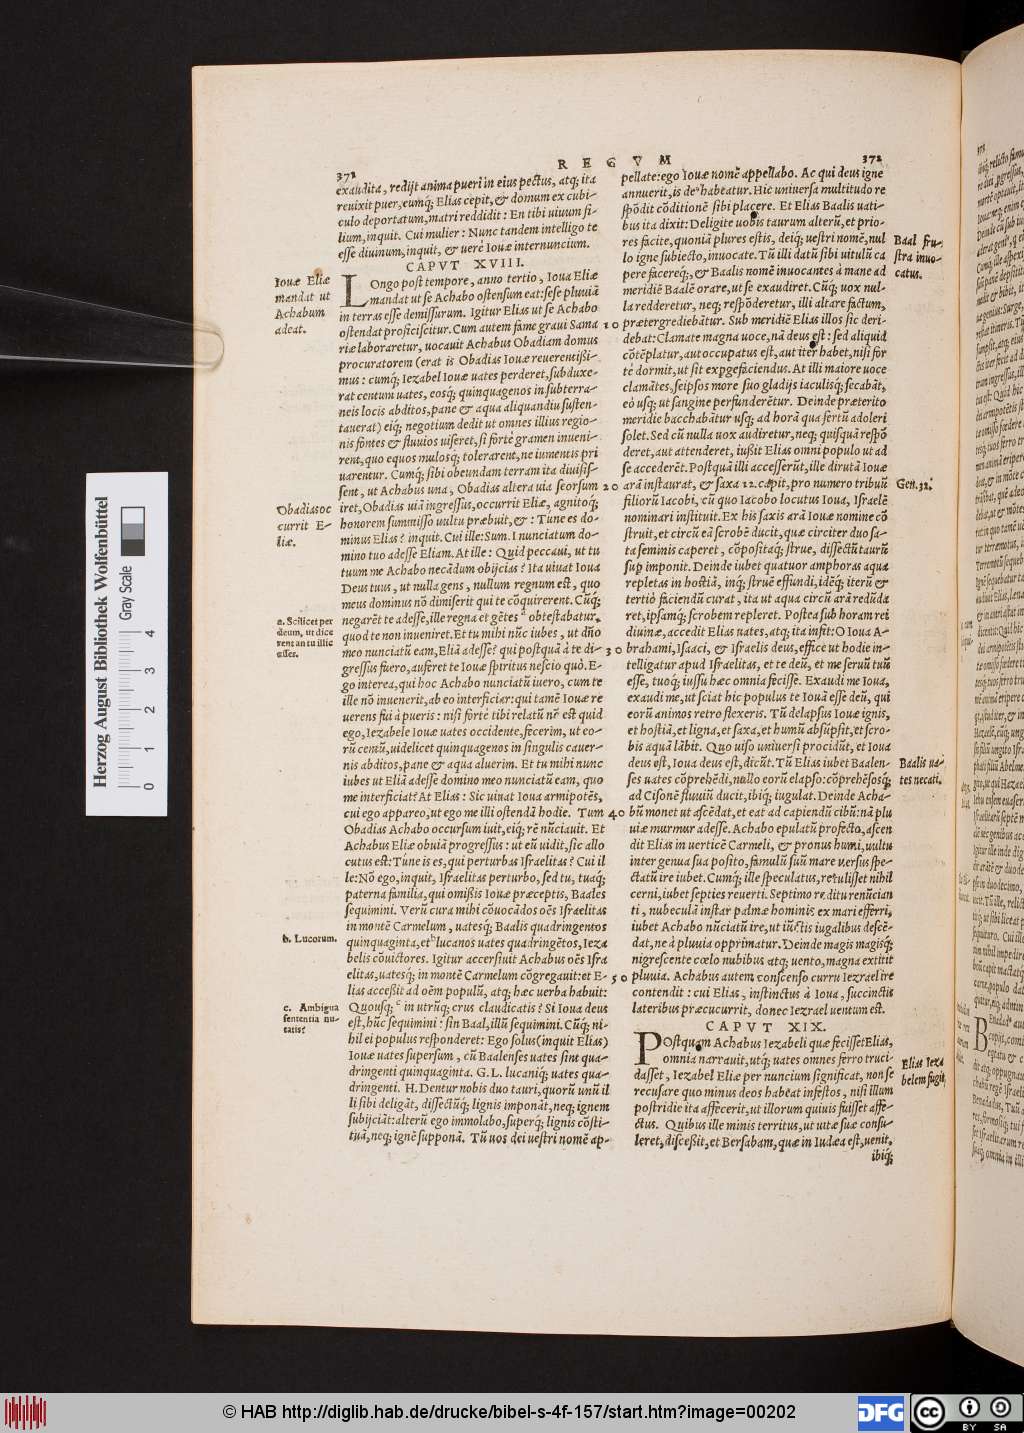 REGVM
371
exaudita, redijt anima pueri in eius pectus, atq; ita
reuixit puer, eumq́; Elias cepit, & domum ex cubi-
culo deportatum, matri reddidit: En tibi uiuum fi-
lium, inquit. Cui mulier: Nunc tandem intelligo te
esse diuinum, inquit, & uere Iouæ internuncium.
CAPVT XVIII.
Iouæ Eliæ
mandat ut
Achabum
adeat.
LOngo post tempore, anno tertio, Ioua Eliæ
mandat ut se Achabo ostensum eat: sese pluuiā
in terras esse demissurum. Igitur Elias ut se Achabo
ostendat proficiscitur. Cum autem fame graui Sama
riæ laboraretur, uocauit Achabus Obadiam domus
procuratorem (erat is Obadias Iouæ reuerentißi-
mus: cumq́; Iezabel Iouæ uates perderet, subduxe-
rat centum uates, eosq́; quinquagenos in subterra-
neis locis abditos, pane & aqua aliquandiu susten-
tauerat) eiq́; negotium dedit ut omnes illius regio-
nis fontes & fluuios uiseret, si forte gramen inueni-
rent, quo equos mulosq́; tolerarent, ne iumentis pri
uarentur. Cumq́; sibi obeundam terram ita diuisis-
sent, ut Achabus una, Obadias altera uia seorsum
Obadias oc
currit E-
liæ.
iret, Obadias uiā ingressus, occurrit Eliæ, agnitoq́;
honorem summisso uultu præbuit, & : Tune es do-
minus Elias? inquit. Cui ille: Sum. I nunciatum do-
mino tuo adesse Eliam. At ille: Quid peccaui, ut tu
tuum me Achabo necādum obijcias? Ita uiuat Ioua
Deus tuus, ut nulla gens, nullum regnum est, quo
meus dominus nō dimiserit qui te cōquirerent. Cūq́;
a. Scilicet per
deum, ut dice
rent an tu illic
esses.
negarēt te adesse, ille regna et gētes a obtestabatur,
quod te non inueniret. Et tu mihi nūc iubes, ut dño
meo nunciatū eam, Eliā adesse? qui postquā à te di-
gressus fuero, auferet te Iouæ spiritus nescio quò. E-
go interea, qui hoc Achabo nunciatū iuero, cum te
ille nō inuenerit, ab eo interficiar: qui tamē Iouæ re
uerens fui à pueris: nisi forte tibi relatū nō est quid
ego, Iezabele Iouæ uates occidente, fecerim, ut eo-
rū centū, uidelicet quinquagenos in singulis cauer-
nis abditos, pane & aqua aluerim. Et tu mihi nunc
iubes ut Eliā adesse domino meo nunciatū eam, quo
me interficiat? At Elias: Sic uiuat Ioua armipotēs,
cui ego appareo, ut ego me illi ostendā hodie. Tum
Obadias Achabo occursum iuit, eiq́; rē nūciauit. Et
Achabus Eliæ obuiā progressus: ut eū uidit, sic allo
cutus est: Tune is es, qui perturbas Israelitas? Cui il
le: Nō ego, inquit, Israelitas perturbo, sed tu, tuaq́;
paterna familia, qui omißis Iouæ præceptis, Baales
sequimini. Verū cura mihi cōuocādos oēs Israelitas
in montē Carmelum, uatesq́; Baalis quadringentos
b. Lucorum.
quinquaginta, et b lucanos uates quadringētos, Ieza
belis cōuictores. Igitur accersiuit Achabus oēs Isra
elitas, uatesq́; in montē Carmelum cōgregauit: et E-
lias acceßit ad oēm populū, atq; hæc uerba habuit:
c. Ambigua
sententia nu-
tatis?
Quousq; c in utrūq; crus claudicatis? Si Ioua deus
est, hūc sequimini: sin Baal, illū sequimini. Cūq́; ni-
hil ei populus responderet: Ego solus (inquit Elias)
Iouæ uates supersum, cū Baalenses uates sint qua-
dringenti quinquaginta. G. L. lucaniq́; uates qua-
dringenti. H. Dentur nobis duo tauri, quorū unū il
li sibi deligāt, dissectūq́; lignis imponāt, neq; ignem
subijciāt: alterū ego immolabo, superq́; lignis cōsti-
tuā, neq; ignē supponā. Tū uos dei uestri nomē ap-
10
20
30
40
50
372
pellate: ego Iouæ nomē appellabo. Ac qui deus igne
annuerit, is deꝰ habeatur. Hic uniuersa multitudo re
spōdit cōditionē sibi placere. Et Elias Baalis uati-
bus ita dixit: Deligite uobis taurum alterū, et prio-
Baal fru-
stra inuo-
catus.
res facite, quoniā plures estis, deiq́; uestri nomē, nul
lo igne subiecto, inuocate. Tū illi datū sibi uitulū ca
pere facereq́;, & Baalis nomē inuocantes à mane ad
meridiē Baalē orare, ut se exaudiret. Cūq́; uox nul-
la redderetur, neq; respōderetur, illi altare factum,
prætergrediebātur. Sub meridiē Elias illos sic deri-
debat: Clamate magna uoce, nā deus est: sed aliquid
cōtēplatur, aut occupatus est, aut iter habet, nisi for
tē dormit, ut sit expgefaciendus. At illi maiore uoce
clamātes, seipsos more suo gladijs iaculisq́; secabāt,
eò usq; ut sangine perfunderētur. Deinde præterito
meridie bacchabātur usq; ad horā qua fertū adoleri
solet. Sed cū nulla uox audiretur, neq; quisquā respō
deret, aut attenderet, iußit Elias omni populo ut ad
se accederēt. Postquā illi accesserūt, ille dirutā Iouæ
Gen. 32.
arā instaurat, & saxa 12. capit, pro numero tribuū
filiorū Iacobi, cū quo Iacobo locutus Ioua, Israelē
nominari instituit. Ex his saxis arā Iouæ nomine cō
struit, et circū eā scrobē ducit, quæ circiter duo sa-
ta seminis caperet, cōpositaq́; strue, dissectū taurū
sup imponit. Deinde iubet quatuor amphoras aqua
repletas in hostiā, inq́; struē effundi, idēq́; iterū &
tertiò faciendū curat, ita ut aqua circū arā redūda
ret, ipsamq́; scrobem repleret. Postea sub horam rei
diuinæ, accedit Elias uates, atq; ita infit: O Ioua A-
brahami, Isaaci, & Israelis deus, effice ut hodie in-
telligatur apud Israelitas, et te deū, et me seruū tuū
esse, tuoq́; iussu hæc omnia fecisse. Exaudi me Ioua,
exaudi me, ut sciat hic populus te Iouā esse deū, qui
eorū animos retro flexeris. Tū delapsus Iouæ ignis,
et hostiā, et ligna, et saxa, et humū absūpsit, et scro-
bis aquā lābit. Quo uiso uniuersi procidūt, et Ioua
Baalis ua-
tes necati.
deus est, Ioua deus est, dicūt. Tū Elias iubet Baalen-
ses uates cōprehēdi, nullo eorū elapso: cōprehēsosq́;
ad Cisonē fluuiū ducit, ibiq́; iugulat. Deinde Acha-
bū monet ut ascēdat, et eat ad capiendū cibū: nā plu
uiæ murmur adesse. Achabo epulatū profecto, ascen
dit Elias in uerticē Carmeli, & pronus humi, uultu
inter genua sua posito, famulū suū mare uersus spe-
ctatū ire iubet. Cumq́; ille speculatus, retulisset nihil
cerni, iubet septies reuerti. Septimo reditu renūcian
ti, nubeculā instar palmæ hominis ex mari efferri,
iubet Achabo nūciatū ire, ut iūctis iugalibus descē-
dat, ne à pluuia opprimatur. Deinde magis magisq́;
nigrescente cœlo nubibus atq; uento, magna extitit
pluuia. Achabus autem conscenso curru Iezrael ire
contendit: cui Elias, instinctus à Ioua, succinctis
lateribus præcucurrit, donec Iezrael uentum est.
CAPVT XIX.
Elias Ieza
belem fugit.
POstquam Achabus Iezabeli quæ fecisset Elias,
omnia narrauit, utq́; uates omnes ferro truci-
dasset, Iezabel Eliæ per nuncium significat, non se
recusare quo minus deos habeat infestos, nisi illum
postridie ita affecerit, ut illorum quiuis fuisset affe-
ctus. Quibus ille minis territus, ut uitæ suæ consu-
leret, discessit, et Bersabam, quæ in Iudæa est, uenit,
ibiq́;
Herzog August Bibliothek Wolfenbüttel
Gray Scale
0 1 2 3 4
© HAB http://diglib.hab.de/drucke/bibel-s-4f-157/start.htm?image=00202
DFG
cc
BY SA